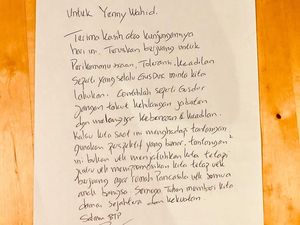 Untuk Yenny Wahid.
Terima kasih atas kunjungannya
hari ini. Teruskan berjuang untuk
Perikemanusiaan, Toleransi, keadilan
seperti yang selalu Gusdur minta kita
lakukan. Contohlah seperti Gusdur
jangan takut kehilangan jabatan
dan melanggar kebenaran & keadilan.
Kalau kita saat ini menghadapi tantangan
gunakan perspektif yang benar, tantangan²
ini bukan utk menjatuhkan kita tetapi
justru utk mempromosikan kita tetap utk
berjuang agar rumah Pancasila utk semua
anak bangsa. Semoga Tuhan memberi kita
damai sejahtera dan kekuatan.
Salam BTP